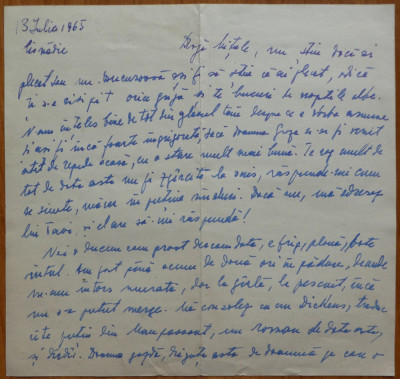 13 Iulie 1965
Cisnădie
Dragă Mițule, nu știu dacă ai
plecat sau nu. M-aș fi să știu că ai plecat, adică
ți s-a risipit orice grijă și te bucuri de nopțile albe.
N-am înțeles bine de tot din glasul tău despre ce e vorba anume
și aș fi încă foarte îngrijorată, dacă Doamna nu s-ar fi venit
atât de repede acasă, cu o stare mult mai bună. Te rog mult de
tot de data asta nu fi zgârcită la scris, răspunde-mi cum
se simte, măcar în puține rânduri. Dacă nu, mă adresez
lui Tavi, și el are să-mi răspundă!
Noi o ducem cam prost deocamdată, e frig, plouă, bate
vântul. Am fost până acum de două ori în pădure, de unde
ne-am întors murată, dar la gârlă, la pescuit, încă
nu s-a putut merge. Mă consolez cu un Dickens, traduc
câte puțin din Maupassant, un roman de data asta,
și Doamna gazdă, drăguța asta de doamnă pe care o